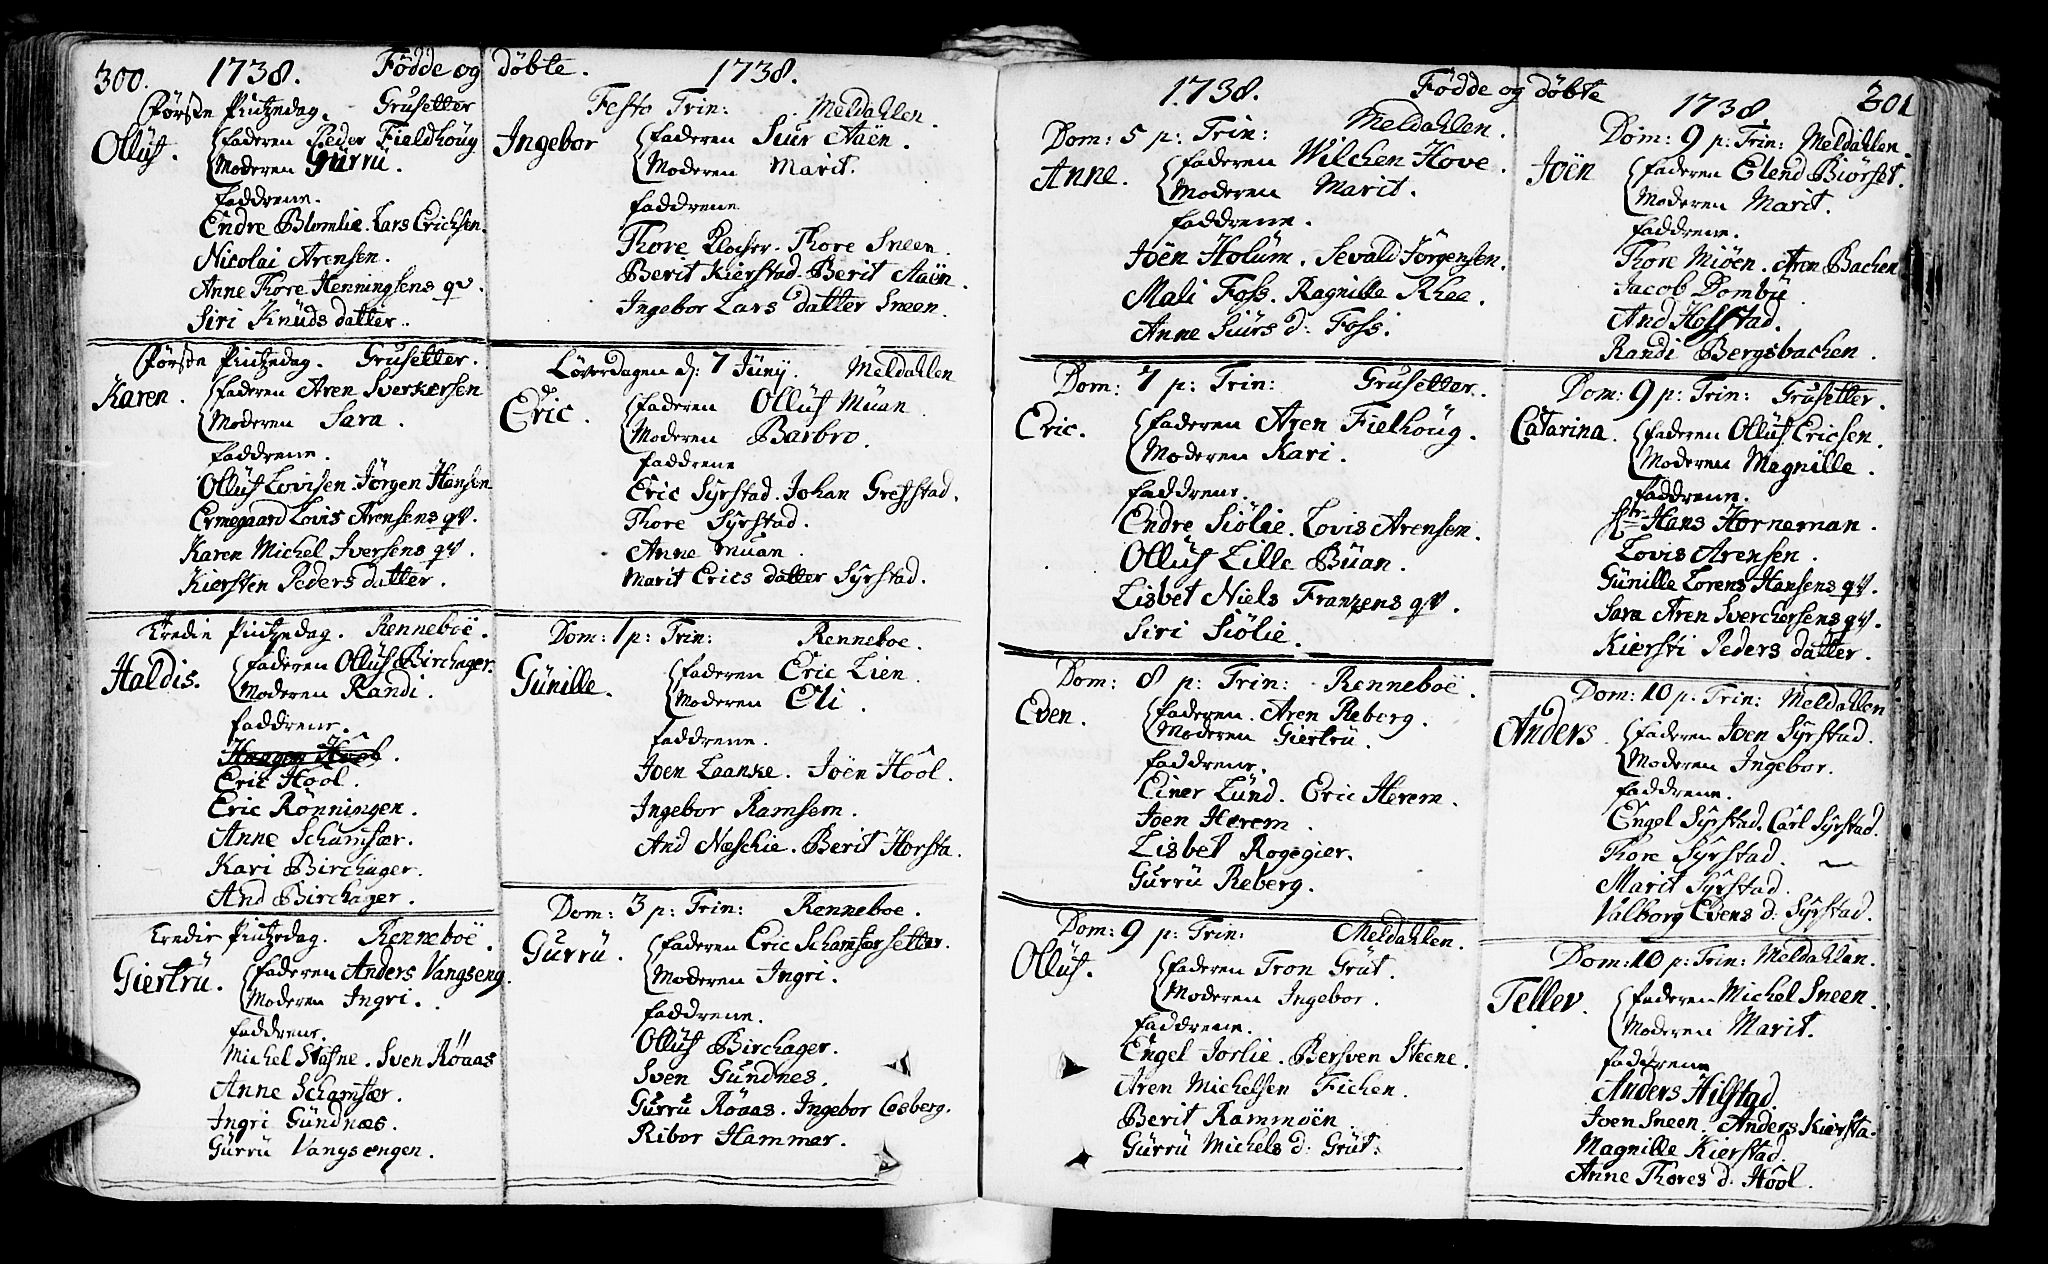 300. 1738. Födde og döbte. 1738.
Första Pintzedag. Grusetter
Ollüf. faderen Peder Fieldhöug
Moderen Gürru.
faddrene.
Endre Blomlie. Lars Erichsen
Nicolai Arensen.
Anne Thore Henningsens qv.
Siri Knüds datter.
Första Pintzedag. Grusetter.
Karen. faderen Aren Sverkersen
Moderen Sara.
faddrene.
Ollüf Lovisen. Jörgen Hansen
Ermegaard Lovis Arensens qv.
Karen Michel Iversens qv.
Kiersten Peders datter.
Tredie Pintzedag. Renneboë.
Haldis. faderen Ollüf Birchager.
Moderen Randi.
faddrene.
Eric Hool.
Eric Rönningen.
Anne Schamfær.
Kari Birchager.
And Birchager.
Tredie Pintzedag. Renneboë.
Giertrü. faderen Anders Vangseng
Moderen Ingri.
faddrene.
Michel Stafne. Sven Röaas
Anne Schamfær.
Ingri Gündnæs.
Gürrü Vangsengen.
Festo Trin: Meldahlen.
Ingebor faderen Siur Aaën.
Moderen Marit.
faddrene
Thore Plocher. Thore Sneen.
Berit Kierstad. Berit Aaën.
Ingebor Lars datter Sneen.
Löverdagen d: 7 Jünij. Meldahlen
Eric. faderen Ollüf Müan
Moderen Barbro.
faddrene
Eric Syrstad. Johan Grefstad.
Thore Syrstad.
Anne Müan.
Marit Erics datter Syrstad.
Dom: 1 p: Trin: Renneboe.
Günille. faderen Eric Lien.
Moderen Eli.
faddrene.
Joen Laanke. Joën Hool.
Ingebor Ramsem.
And Næschie. Berit Horsta.
Dom: 3 p: Trin: Renneboe.
Gürrü. faderen Eric Schamfærsetter.
Moderen Ingri.
faddrene.
Ollüf Birchager.
Sven Gündnes.
Gürrü Röaas. Ingebor Casberg.
Ribor Hammer.
1738. Födde og döbte 1738 301
Dom: 5 p: Trin: Meldahlen.
Anne. faderen Wilchen Hove.
Moderen Marit.
faddrene.
Joën Holüm. Sevald Jörgensen.
Mali Foss. Ragnille Rhee.
Anne Siürs d: Foss.
Dom: 7 p: Trin: Grusetter.
Eric. faderen Aren Fielhöug.
Moderen Kari.
faddrene.
Endre Siölie. Lovis Arensen.
Ollüf Lille Büan.
Lisbet Niels Franzens qv.
Siri Siölie.
Dom: 8 p: Trin: Renneboë.
Even. faderen. Aren Reberg.
Moderen Giertrü.
faddrene.
Einer Lünd. Eric Herem.
Joen Herem.
Lisbet Rogogier.
Gürrü Reberg.
Dom: 9 p: Trin: Meldahlen.
Ollüf. faderen Tron Grüt.
Moderen Ingebor.
faddrene.
Engel Jorlie. Bersven Steene.
Aren Michelsen Fichen.
Berit Rammöen.
Gürrü Michels d: Grüt:
Dom: 9 p: Trin: Meldahlen.
Joën faderen Elend Biörset.
Moderen Marit.
faddrene.
Thore Miöen. Aren Bachen
Jacob Dombü.
And Hoffstad.
Randi Bergsbachen.
Dom: 9 p: Trin: Grusetter.
Catarina. faderen Ollüf Ericsen.
Moderen Magnille.
faddrene.
Hans Horneman.
Lovis Arensen.
Günille Lorens Hansens qv.
Sara Aren Sverchersens qv.
Kiersti Peders datter.
Dom: 10 p: Trin: Meldahlen
Anders. faderen Joen Syrstad.
Moderen Ingebor.
faddrene.
Engel Syrstad. Carl Syrstad.
Thore Syrstad.
Marit Syrstad.
Valborg Evens d: Syrstad.
Dom: 10 p: Trin: Meldahlen.
Tellev. faderen Michel Sneen.
Moderen Marit.
faddrene
Anders Hilstad
Joen Sneen. Anders Kiersta.
Magnille Kierstad.
Anne Thores d. Hool.